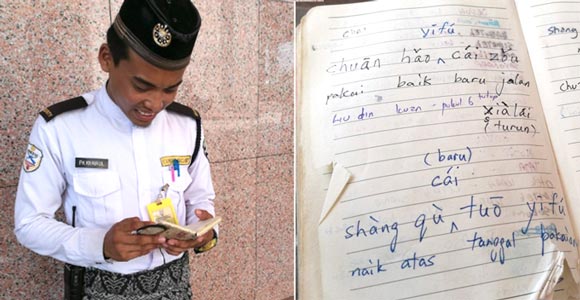 PK KHAIRUL
yīfú
chuān hǎo cái zǒu
pakai baik baru jalan
liu din kuan - pukul 6 tutup
xiàlái
(turun)
(baru)
cái
shàng qù tuō yīfú
naik atas tanggal pakaian